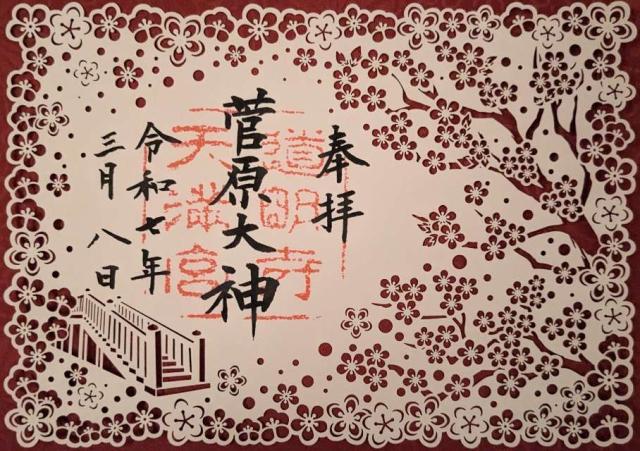 奉拝
道明寺
天満宮
菅原大神
令和七年
三月八日